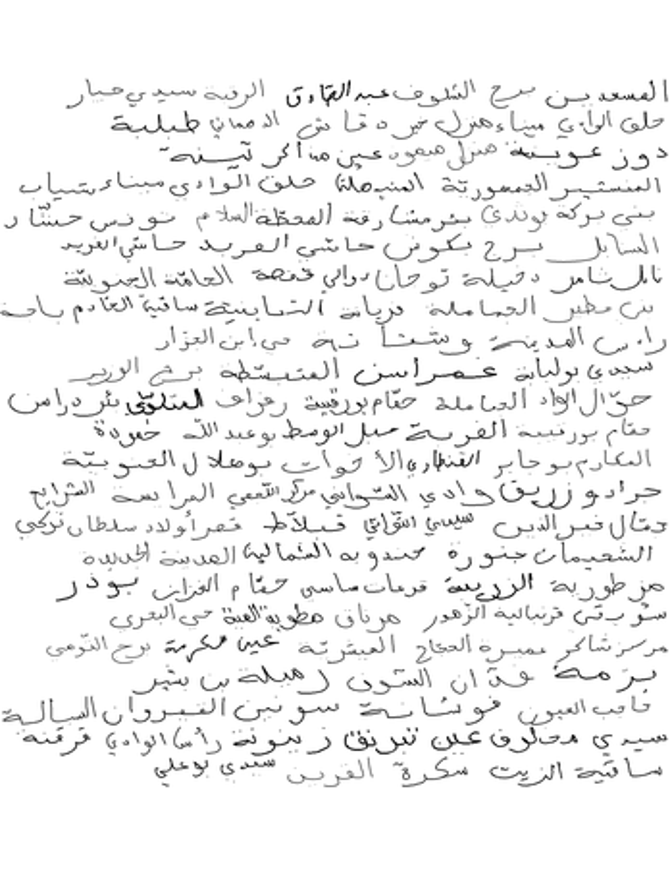 المسعدين برج الشلوف عبد الصادق الرقبة سيدي جبار
حلق الوادي ميناء منزل خير دقاش الدهماني طبلبة
دوز عوينة منزل ميمون عين مذاكر تيبينة
المنستير الجمهورية المنيهلة حلق الوادي ميناء شباب
بني بركة لوندي بئر مشارقة المحطة السلام تونس حشاد
السابل برج يكوش حاشي الفريد حاشي الفريد
بابل شامر دخيلة توجان روافي قفصة الحامة الجنوبية
بني مطير الجماملة فريانة الشبابينية ساقية الخادم باجة
رأس المدينة وشتاتة حي ابن الجزار
سيدي بولبابة غمراسن المتبسطة برج الوزير
حمال الواد الجماملة حمام بورقيبة زغراف المتلوي بئر دراسن
حمام بورقيبة القرية ميل الوسط بوعبد الله خمودة
المكارم بوجابر القنطاري الأخوات بوهلال الجنوبية
جرادو زريق وادي الشواشي مركز اللغمي المرابعية الشرايع
جمال خير الدين سيدي التواتي قبلاط قصر أولاد سلطان تركي
الشعيمات جنورة جندوبة الشمالية المدينة الجديدة
هنزطورية الزريبة فرحات ساسي حمام الغزاز بوذر
شوبرقي قرنبالية الزهور مرناق مطوية القبة حي البحري
مركز شاكر عميرة الحجاج العيثرية عين مكرمة برج التومي
بزمة عقان الشوق رميلة بن بشير
حاجب العيون فوشانة سونين القيروان السالية
سيدي مخلوف عين تبرنق زيتونة رأس الوادي قرقنة
ساقية الزيت سكرة القرين سيدي بوعلي